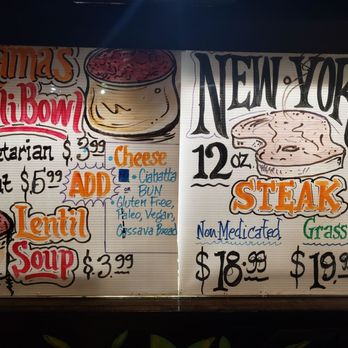 ama's
li Bowl
etarian $3.99
at $5.99
ADD
• Cheese
• Ciabatta
BUN
• Gluten Free,
Paleo, Vegan,
Cassava Bread
Lentil
Soup $3.99
NEW YOR
12 oz
STEAK
Non Medicated
$18.99
Grass
$19.9